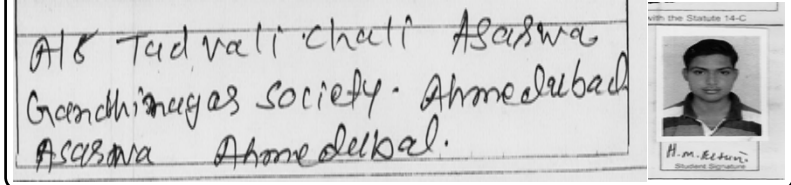 A/8 Tadvali Chali Asarwa
Gandhinagar Society. Ahmedabad
Asarwa Ahmedabad.
with the Statute 14-C
H.M.
Student Signature